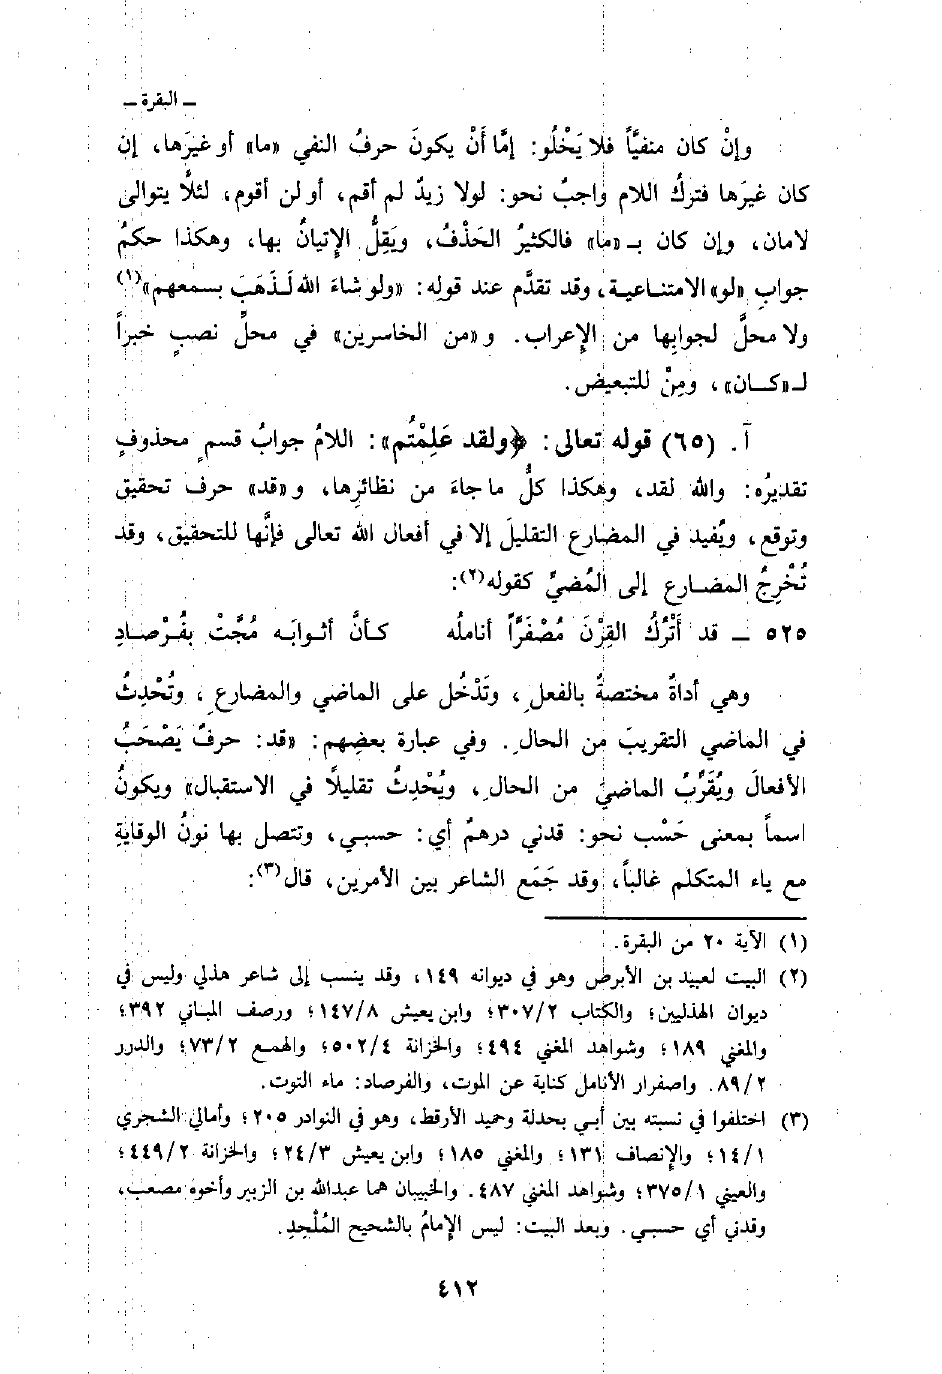 ـ البقرة ـ
وإنْ كان منفيَّاً فلا يَخْلُو: إمَّا أَنْ يكونَ حرفُ النفي «ما» أو غيرَها، إن
كان غيرَها فتركُ اللام واجبٌ نحو: لولا زيدٌ لم أقم، أو لن أقوم، لئلَّا يتوالى
لامان، وإن كان بـ «ما» فالكثيرُ الحَذْفُ، ويَقِلُّ الإِتيانُ بها، وهكذا حكمُ
جوابِ «لو» الامتناعية، وقد تقدَّم عند قولِه: «ولو شاءَ الله لَذَهَبَ بسمعهم»(١)
ولا محلَّ لجوابِها من الإِعراب. و «من الخاسرين» في محلِّ نصبٍ خبراً
لـ «كان»، ومِنْ للتبعيض.
آ. (٦٥) قوله تعالى: ﴿ولقد عَلِمْتُم﴾: اللامُ جوابُ قسمٍ محذوفٍ
تقديرُه: والله لقد، وهكذا كلُّ ما جاءَ من نظائرِها، و «قد» حرف تحقيق
وتوقع، ويُفيد في المضارع التقليلَ إلا في أفعال الله تعالى فإنَّها للتحقيق، وقد
تُخْرِجُ المضارع إلى المُضيِّ كقوله(٢):
٥٢٥ ـ قد أَتْرُكُ القِرْنَ مُصْفَرَّاً أناملُه كأنَّ أثوابَه مُجَّتْ بفُرْصادِ
وهي أداةٌ مختصةٌ بالفعلِ، وتَدْخُل على الماضي والمضارعِ، وتُحْدِثُ
في الماضي التقريبَ من الحالِ. وفي عبارة بعضِهم: «قد: حرفٌ يَصْحَبُ
الأفعالَ ويُقَرِّبُ الماضيَ من الحالِ، ويُحْدِثُ تقليلًا في الاستقبال» ويكونُ
اسماً بمعنى حَسْب نحو: قدني درهمٌ أي: حسبي، وتتصل بها نونُ الوقايةِ
مع ياء المتكلم غالباً، وقد جَمَع الشاعر بين الأمرين، قال(٣):
(١) الآية ٢٠ من البقرة.
(٢) البيت لعبيد بن الأبرص وهو في ديوانه ١٤٩، وقد ينسب إلى شاعر هذلي وليس في
ديوان الهذليين؛ والكتاب ٣٠٧/٢؛ وابن يعيش ١٤٧/٨؛ ورصف المباني ٣٩٢؛
والمغني ١٨٩؛ وشواهد المغني ٤٩٤؛ والخزانة ٥٠٢/٤؛ والهمع ٧٣/٢؛ والدرر
٨٩/٢. واصفرار الأنامل كناية عن الموت، والفرصاد: ماء التوت.
(٣) اختلفوا في نسبته بين أبي بحدلة وحميد الأرقط، وهو في النوادر ٢٠٥؛ وأمالي الشجري
١٤/١؛ والإنصاف ١٣١؛ والمغني ١٨٥؛ وابن يعيش ٢٤/٣؛ والخزانة ٤٤٩/٢؛
والعيني ٣٧٥/١؛ وشواهد المغني ٤٨٧. والخبيبان هما عبدالله بن الزبير وأخوه مصعب،
وقدني أي حسبي. وبعد البيت: ليس الإِمامُ بالشحيح المُلْحِدِ.
٤١٢